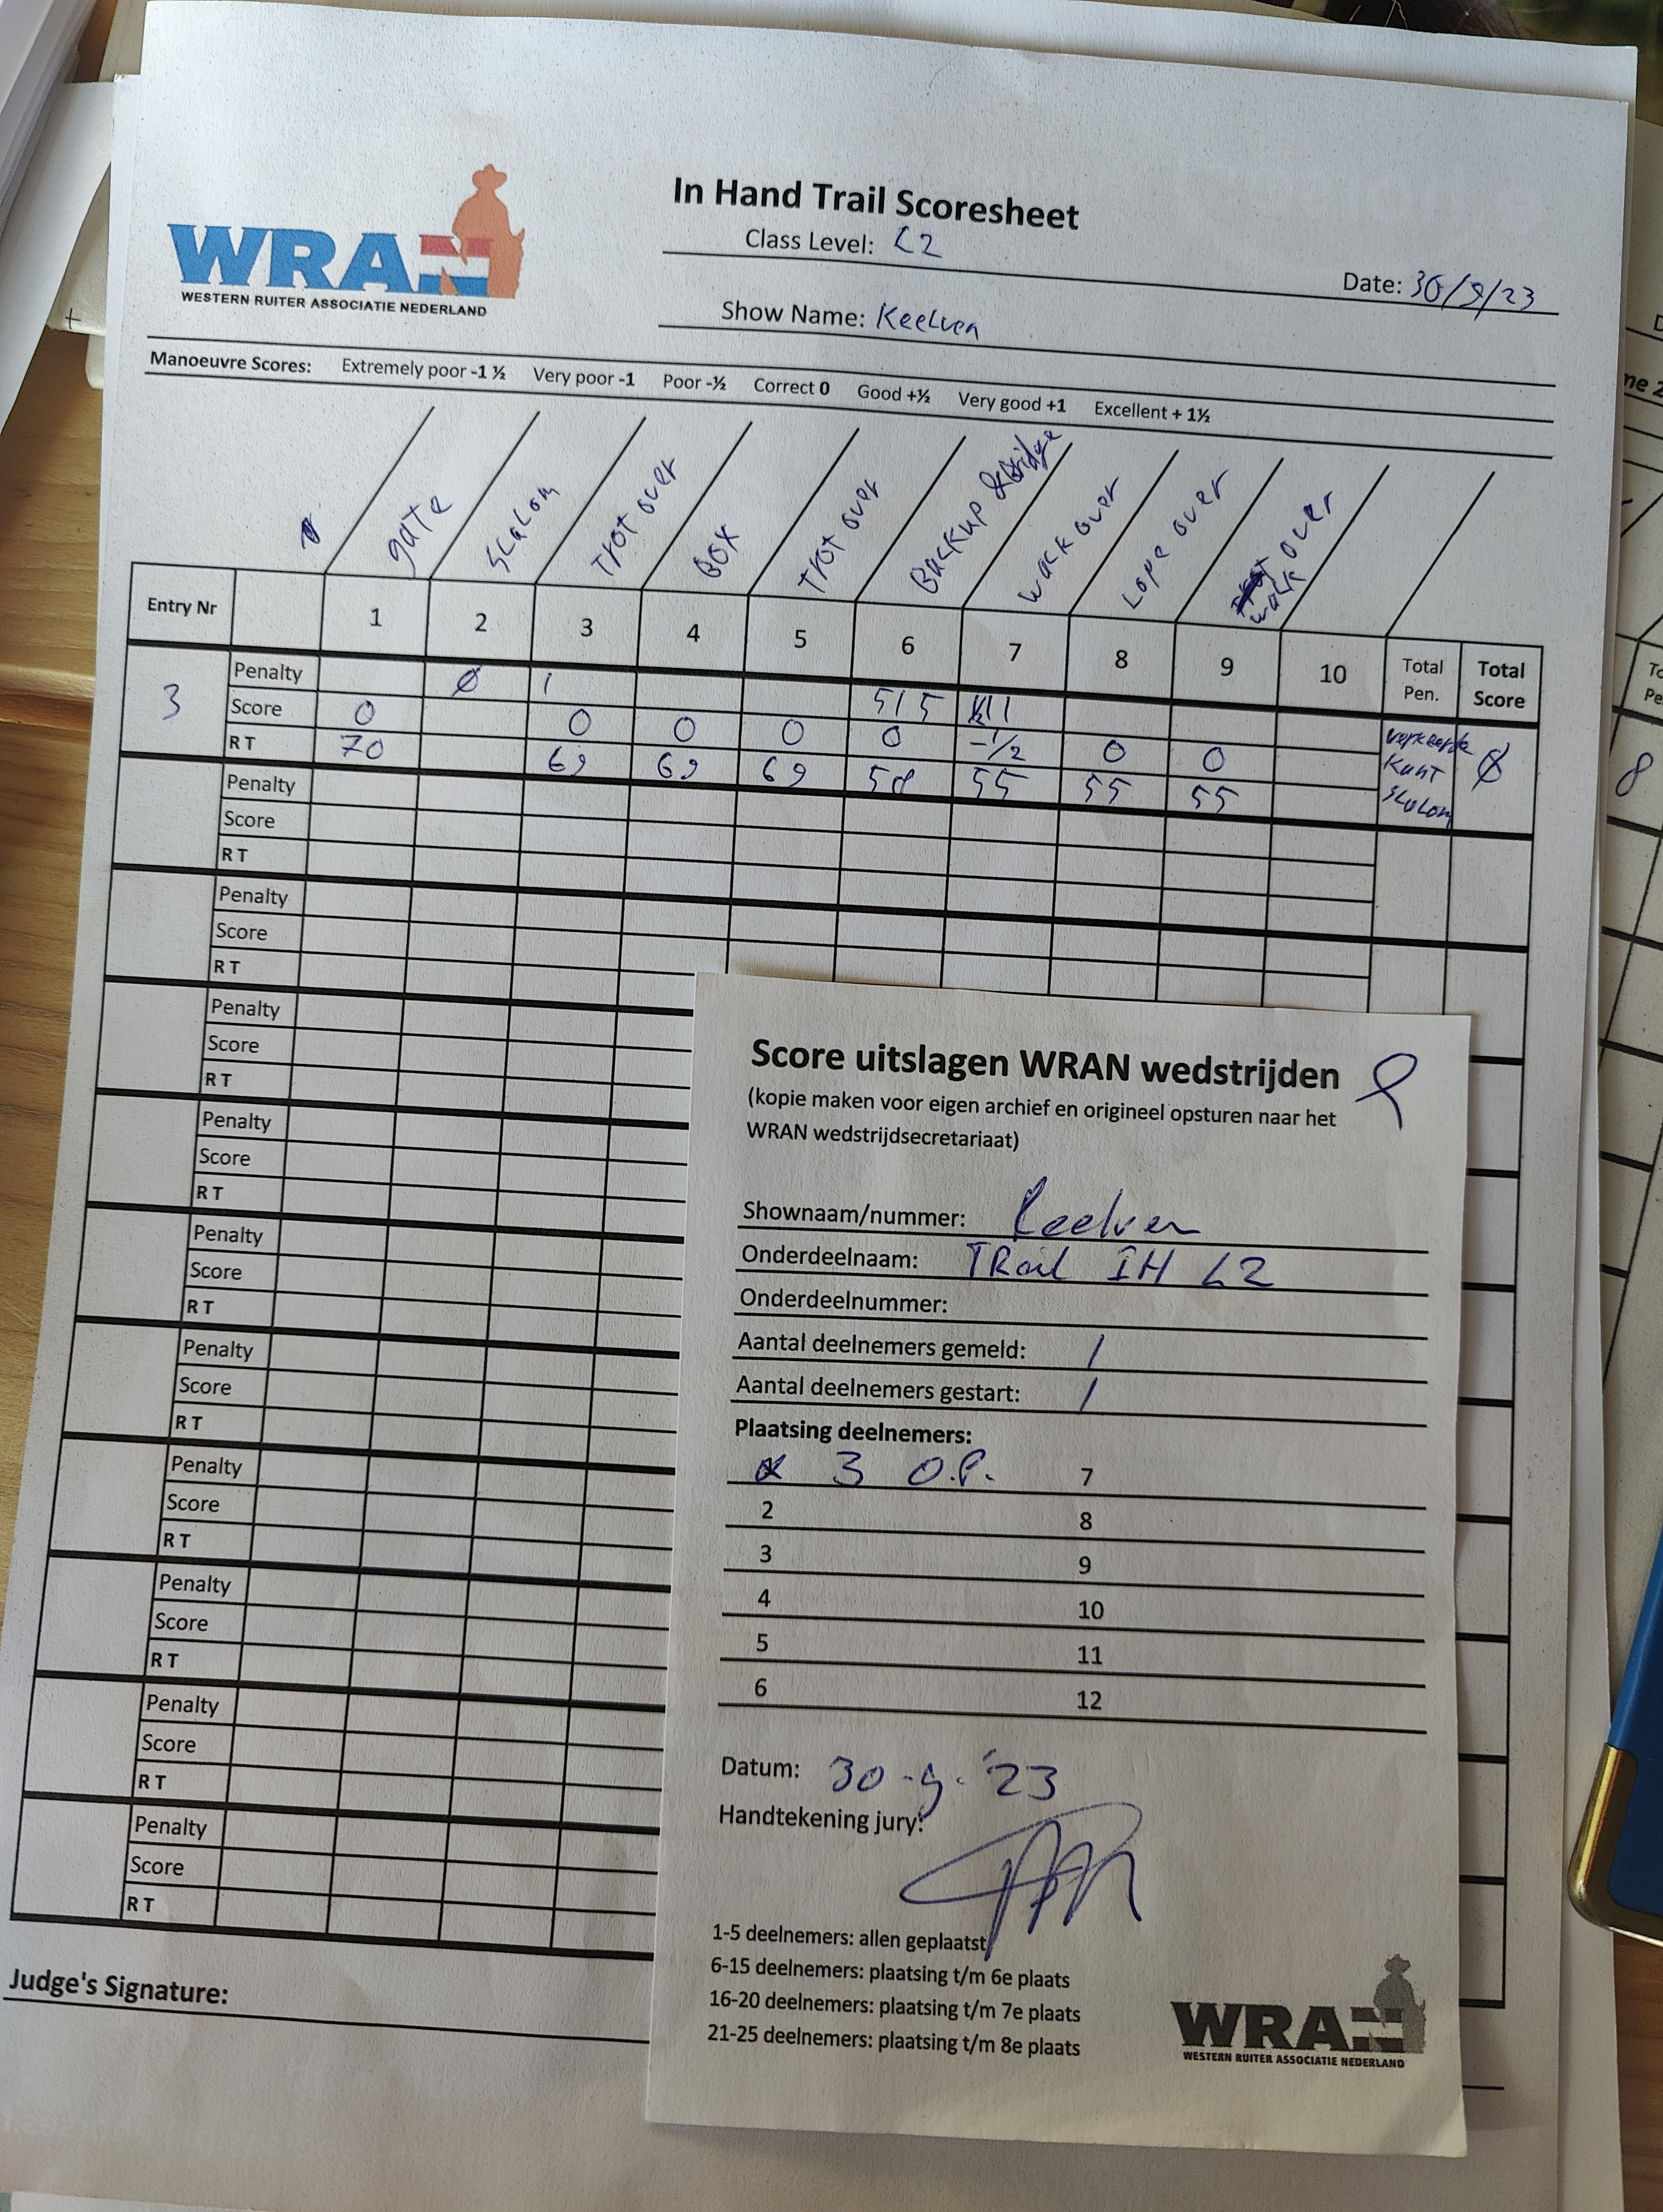 WRAN
WESTERN RUITER ASSOCIATIE NEDERLAND
In Hand Trail Scoresheet
Class Level: L2
Date: 30/9/23
Show Name: Keelven
Manoeuvre Scores: Extremely poor -1 ½ Very poor -1 Poor -½ Correct 0 Good +½ Very good +1 Excellent + 1½
gate
Slalom
Trot over
Box
Trot over
Backup & Bridge
Walk over
Lope over
walk over
Entry Nr 1 2 3 4 5 6 7 8 9 10 Total Pen. Total Score
3
Penalty Ø 1 5 1 5 1 1
Score 0 0 0 0 0 -1/2 0 0
RT 70 69 69 69 58 55 55 55
verkeerde
kant
slalom
Ø
Penalty
Score
RT
Penalty
Score
RT
Penalty
Score
RT
Penalty
Score
RT
Penalty
Score
RT
Penalty
Score
RT
Penalty
Score
RT
Penalty
Score
RT
Penalty
Score
RT
Penalty
Score
RT
Judge's Signature:
Score uitslagen WRAN wedstrijden
(kopie maken voor eigen archief en origineel opsturen naar het
WRAN wedstrijdsecretariaat)
Shownaam/nummer: Keelven
Onderdeelnaam: TRail IH L2
Onderdeelnummer:
Aantal deelnemers gemeld: 1
Aantal deelnemers gestart: 1
Plaatsing deelnemers:
3 O.P. 7
2 8
3 9
4 10
5 11
6 12
Datum: 30-9-'23
Handtekening jury:
1-5 deelnemers: allen geplaatst
6-15 deelnemers: plaatsing t/m 6e plaats
16-20 deelnemers: plaatsing t/m 7e plaats
21-25 deelnemers: plaatsing t/m 8e plaats
WRAN
WESTERN RUITER ASSOCIATIE NEDERLAND